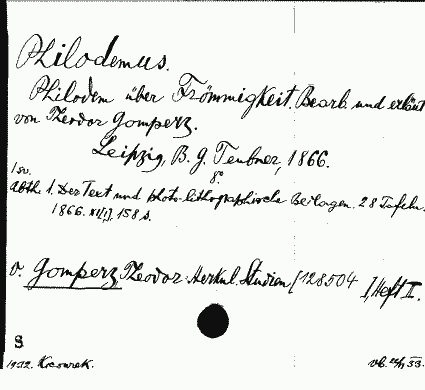 Philodemus.
Philodem über Frömmigkeit. Bearb. und erläut
von Theodor Gomperz.
Leipzig, B. G. Teubner, 1866.
8°.
1 sv.
Abth. 1. Der Text und photo-lithographische Beilagen. 28 Tafeln.
1866. XI[I], 158 s.
v. Gomperz, Theodor: Herkul. Studien [128504 ], Heft II.
S
1932.
vb.